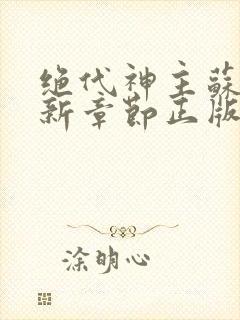 绝代神主蘇
新章節正版
涂明心